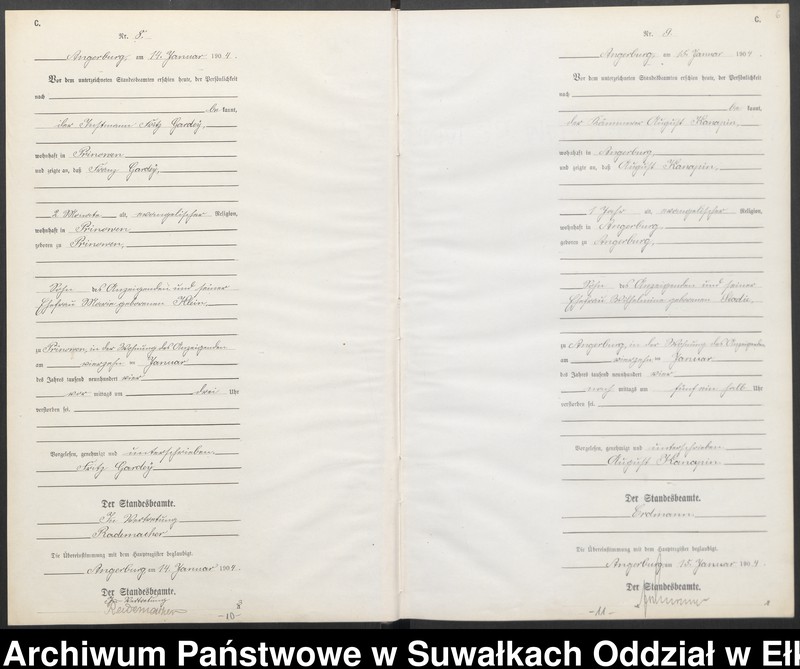 C.
Nr. 8.
Angerburg, am 14. Januar 1904.
Vor dem unterzeichneten Standesbeamten erschien heute, der Persönlichkeit
nach
be kannt,
der Instmann Fritz Gardey,
wohnhaft in Prinowen
und zeigte an, daß Franz Gardey,
2 Monate alt, evangelischer Religion,
wohnhaft in Prinowen
geboren zu Prinowen,
Sohn des Anzeigenden und seiner
Ehefrau Maria geborenen Klein
zu Prinowen, in der Wohnung des Anzeigenden
am vierzehn ten Januar
des Jahres tausend neunhundert vier
vor mittags um drei Uhr
verstorben sei.
Vorgelesen, genehmigt und unterschrieben
Fritz Gardey
Der Standesbeamte.
In Vertretung
Rademacher
Die Übereinstimmung mit dem Hauptregister beglaubigt.
Angerburg am 14. Januar 1904.
Der Standesbeamte.
In Vertretung
Rademacher
-10-
6
C.
Nr. 9.
Angerburg, am 15. Januar 1904.
Vor dem unterzeichneten Standesbeamten erschien heute, der Persönlichkeit
nach
be kannt,
der Kämmerer August Kanapin,
wohnhaft in Angerburg,
und zeigte an, daß August Kanapin,
1 Jahr a. evangelischer Religion,
wohnhaft in Angerburg
geboren zu Angerburg,
Sohn des Anzeigenden und seiner
Ehefrau Wilhelmine geborenen
zu Angerburg, in der Wohnung des Anzeigenden
am vierzehn ten Januar
des Jahres tausend neunhundert vier
nach mittags um fünf ein halb Uhr
verstorben sei.
Vorgelesen, genehmigt und unterschrieben
August Kanapin
Der Standesbeamte.
Erdmann
Die Übereinstimmung mit dem Hauptregister beglaubigt.
Angerburg am 15. Januar 1904.
Der Standesbeamte.
Erdmann
-11-
Archiwum Państwowe w Suwałkach Oddział w Eł